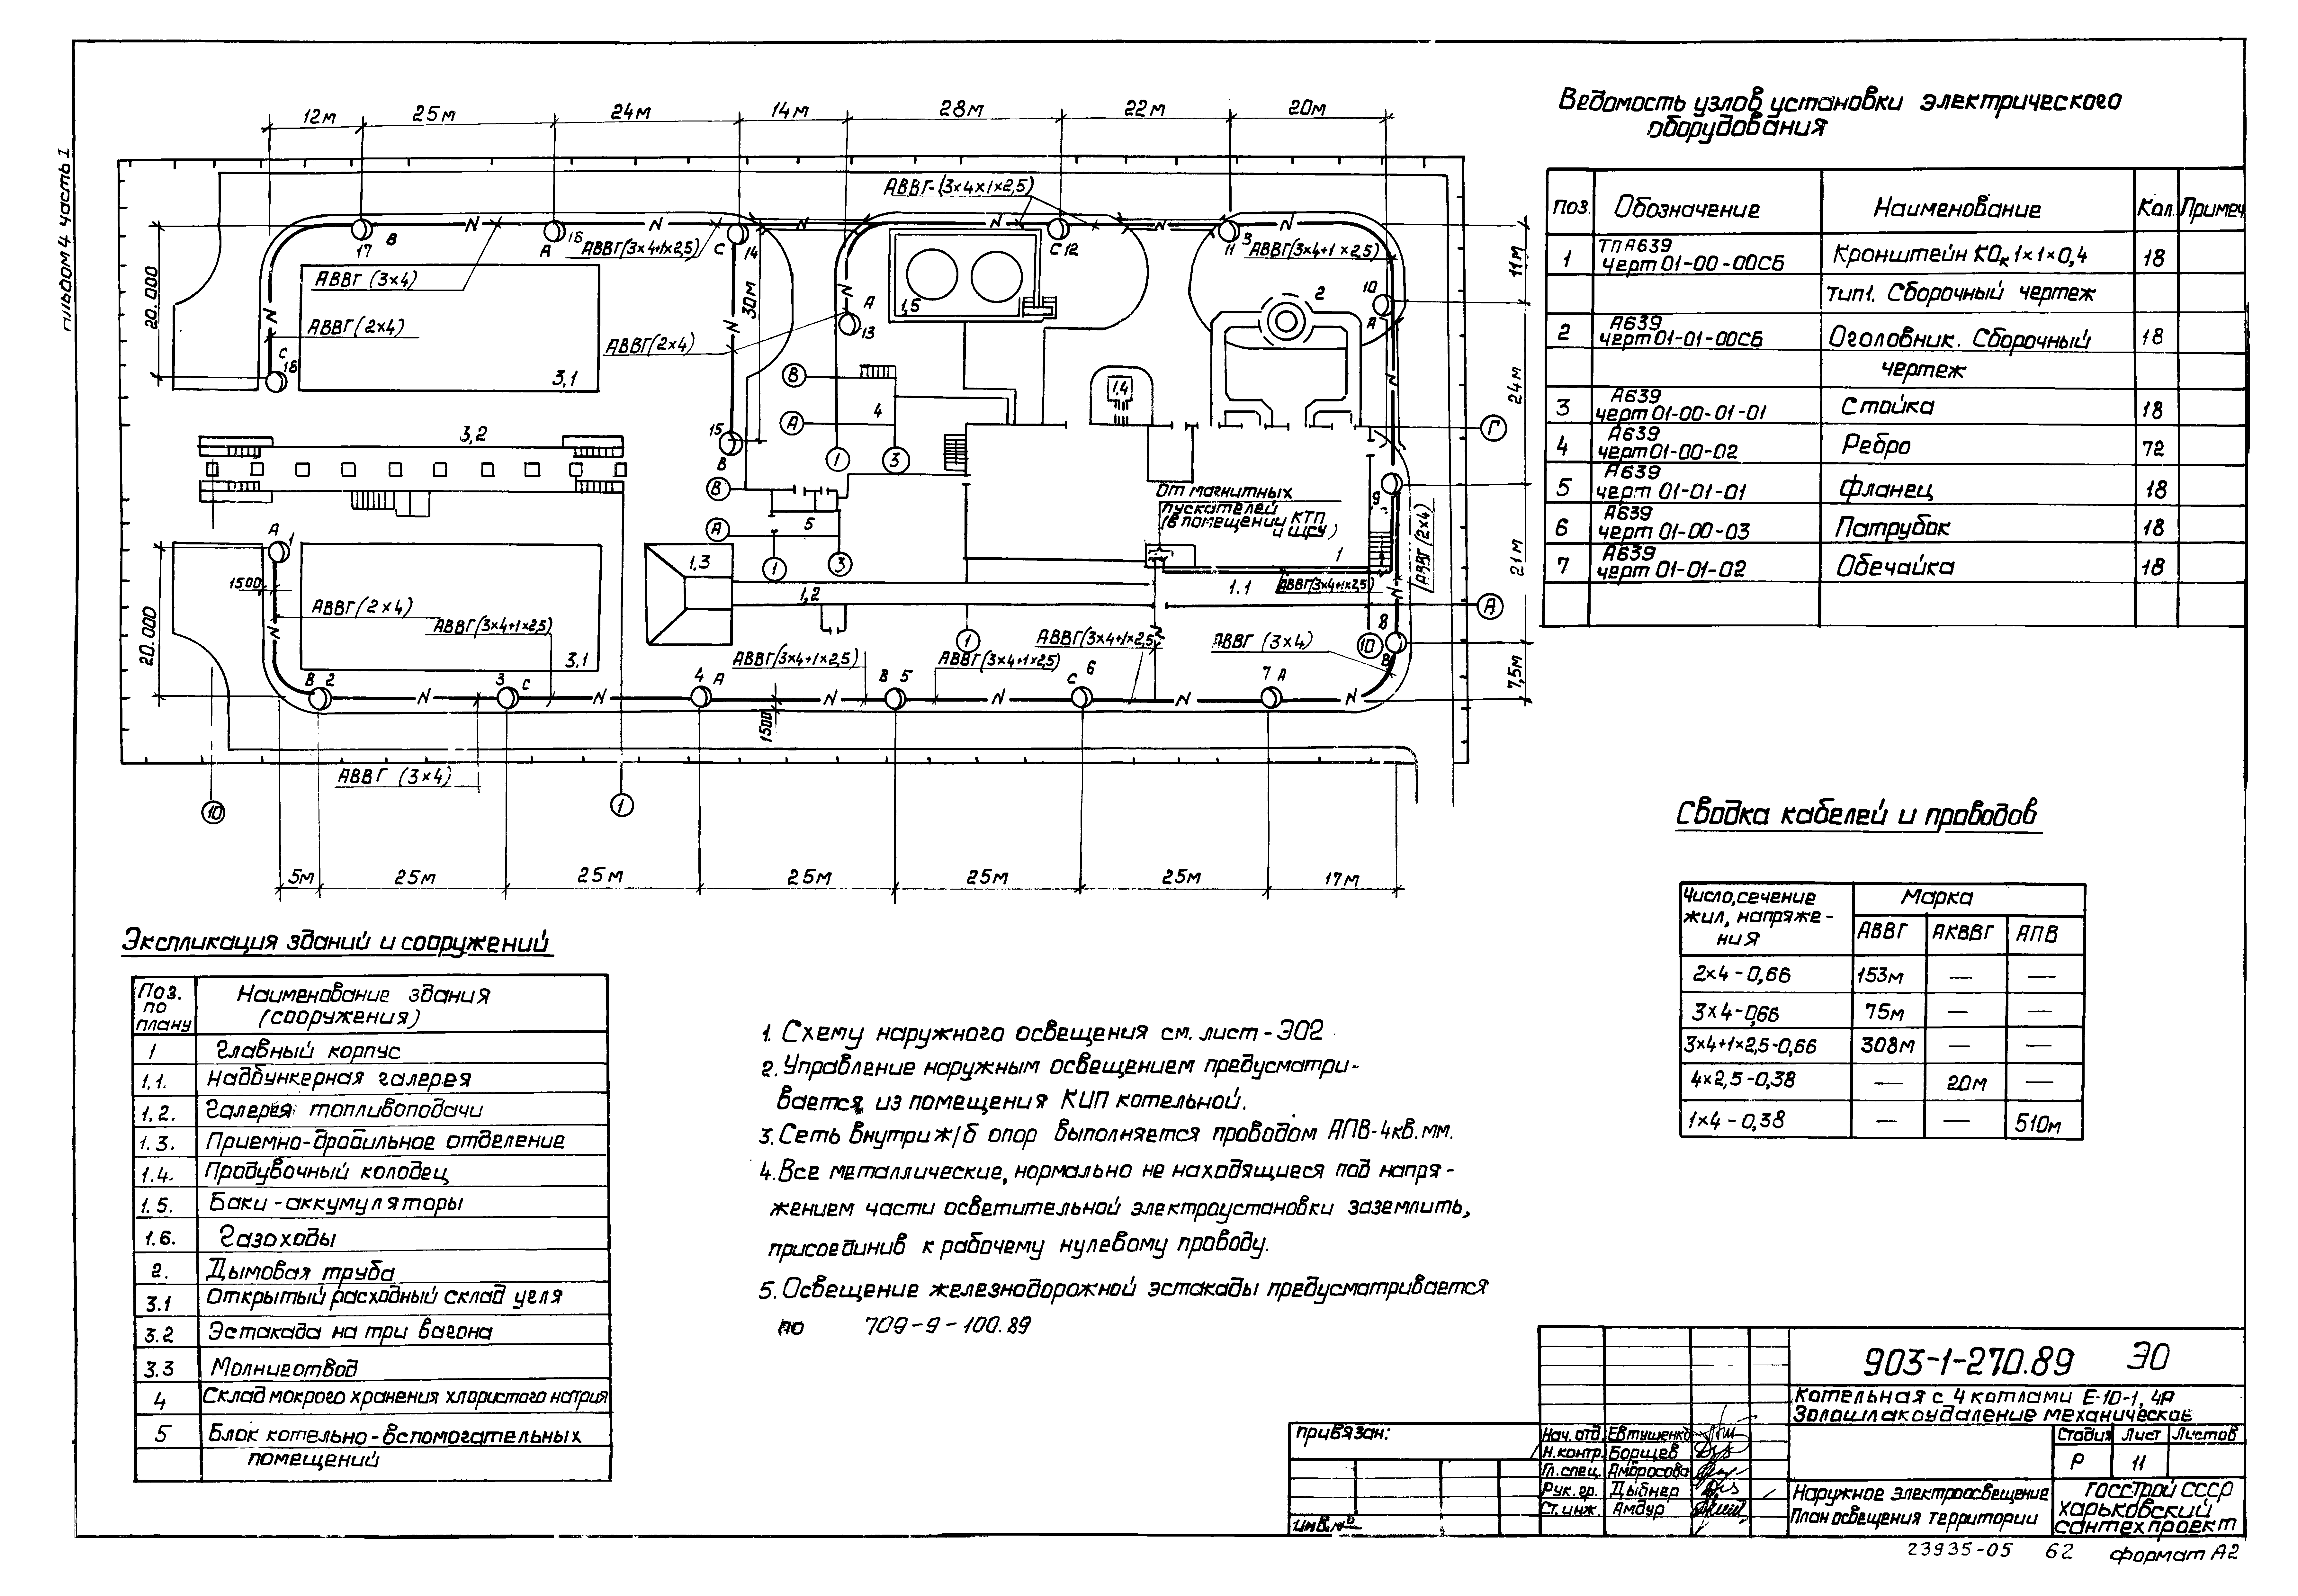 Альбом 4 часть 1
12м 25м 24м 14м 28м 22м 20м
АВВГ-(3×4×1×2,5)
17 В
А 16
АВВГ(3×4+1×2,5)
С 14
С 12
11
3
АВВГ(3×4+1×2,5)
11м
АВВГ (3×4)
20.000
АВВГ (2×4)
С
18
3,1
30м
АВВГ(2×4)
А
13
1,5
2
10
А
24м
В
А
4
1,4
1
3
Г
15
В
3,2
В
А
5
1
3
От магнитных
пускателей
(в помещении КТП
и ЩСУ)
9
АВВГ (2×4)
21м
А
1
1500
20.000
АВВГ (2×4)
АВВГ(3×4+1×2,5)
3,1
1,3
1,2
1
1.1
АВВГ(3×4+1×2,5)
А
1
10
8
В
АВВГ(3×4+1×2,5)
АВВГ(3×4+1×2,5)
АВВГ(3×4+1×2,5)
АВВГ (3×4)
7,5м
В 2
3 С
4 А
В 5
С 6
7 А
1500
АВВГ (3×4)
10
1
5м 25м 25м 25м 25м 25м 17м
Ведомость узлов установки электрического
оборудования
Поз. Обозначение Наименование Кол. Примеч
1 ТП А639
Черт 01-00-00СБ Кронштейн КОк 1×1×0,4 18
тип1. Сборочный чертеж
2 А639
черт 01-01-00СБ Оголовник. Сборочный 18
чертеж
3 А639
черт 01-00-01-01 Стойка 18
4 А639
черт 01-00-02 Ребро 72
5 А639
черт 01-01-01 Фланец 18
6 А639
черт 01-00-03 Патрубок 18
7 А639
черт 01-01-02 Обечайка 18
Сводка кабелей и проводов
Число, сечение
жил, напряже-
ния
Марка
АВВГ АКВВГ АПВ
2×4-0,66 153м — —
3×4-0,66 75м — —
3×4+1×2,5-0,66 308м — —
4×2,5-0,38 — 20м —
1×4-0,38 — — 510м
Экспликация зданий и сооружений
Поз.
по
плану
Наименование здания
(сооружения)
1 Главный корпус
1,1. Надбункерная галерея
1,2. Галерея топливоподачи
1.3. Приемно-дробильное отделение
1.4. Продувочный колодец
1.5. Баки-аккумуляторы
1.6. Газоходы
2. Дымовая труба
3.1 Открытый расходный склад угля
3.2 Эстакада на три вагона
3.3 Молниеотвод
4 Склад мокрого хранения хлористого натрия
5 Блок котельно-вспомогательных
помещений
1. Схему наружного освещения см. лист-ЭО2
2. Управление наружным освещением предусматри-
вается из помещения КИП котельной.
3. Сеть внутри ж/б опор выполняется проводом АПВ-4кв.мм.
4. Все металлические, нормально не находящиеся под напря-
жением части осветительной электроустановки заземлить,
присоединив к рабочему нулевому проводу.
5. Освещение железнодорожной эстакады предусматривается
по 709-9-100.89
Привязан:
Инв.№
903-1-270.89 ЭО
Котельная с 4 котлами Е-10-1,4Р
Золошлакоудаление механическое
Нач. отд. Евтушенко
Н.контр. Борщев
Гл.спец. Амбросова
Рук.гр. Дыбнер
Ст.инж. Амдур
Стадия Лист Листов
Р 11
Наружное электроосвещение
План освещения территории
Госстрой СССР
Харьковский
Сантехпроект
23935-05 62 формат А2